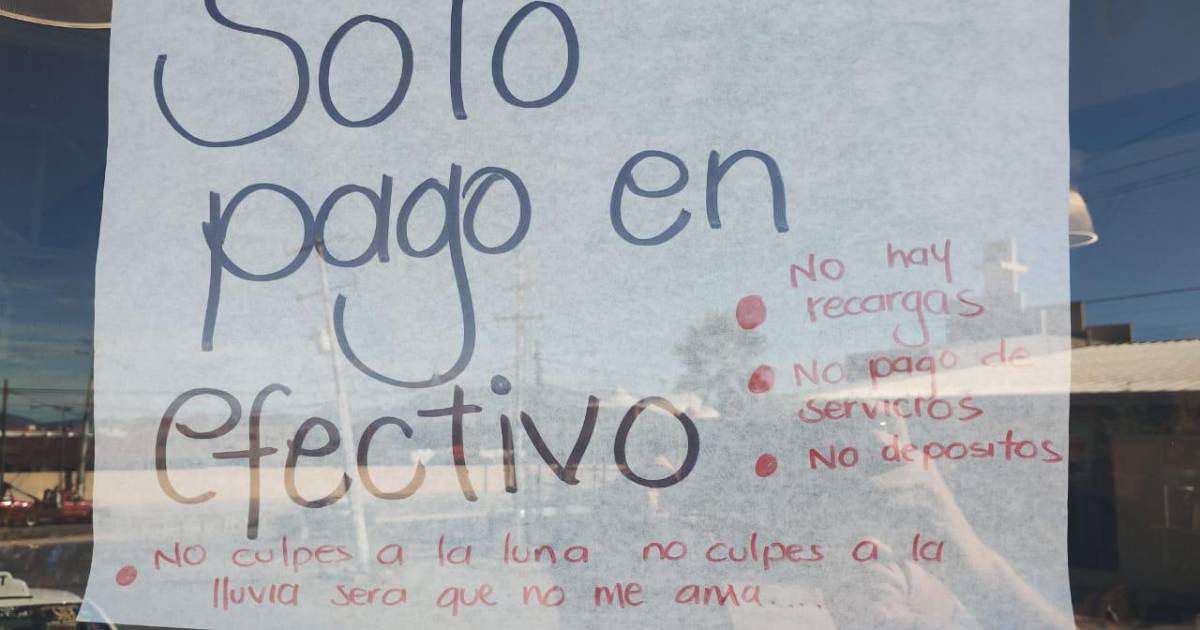 Solo
pago en
efectivo
No hay
recargas
No pago de
servicios
No depositos
No culpes a la luna no culpes a la
lluvia sera que no me ama....